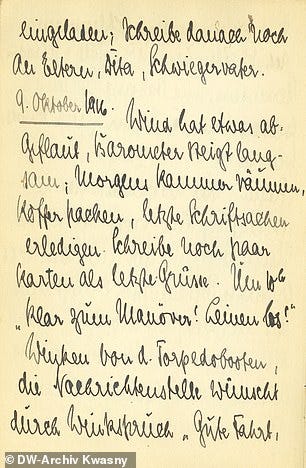 eingeladen; schreibe danach noch
an Eltern, Dita, Schwiegervater.
9. Oktober 1916. Wind hat etwas ab-
geflaut, Barometer steigt lang-
sam; Morgens Kammer räumen,
Koffer packen, letzte Schriftsachen
erledigen. Schreibe noch paar
Karten als letzte Grüsse. Um
"Klar zum Manöver! Leinen los!"
Winken von d. Torpedobooten,
die Nachrichtenstelle wünscht
durch Winkspruch "Gute Fahrt,
© DW-Archiv Kwasny